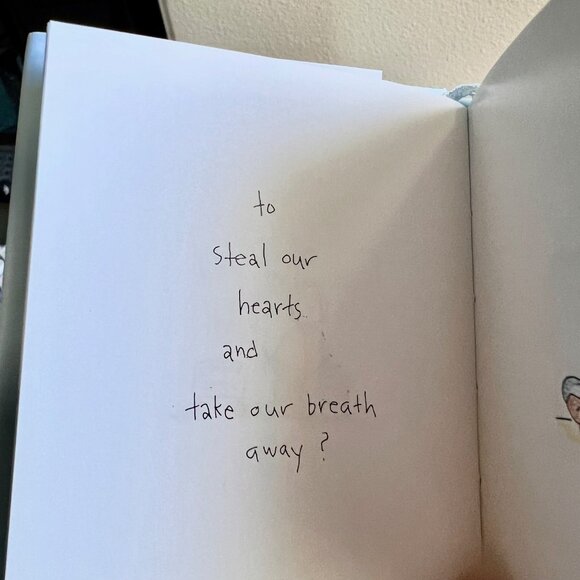 to
steal our
hearts
and
take our breath
away?